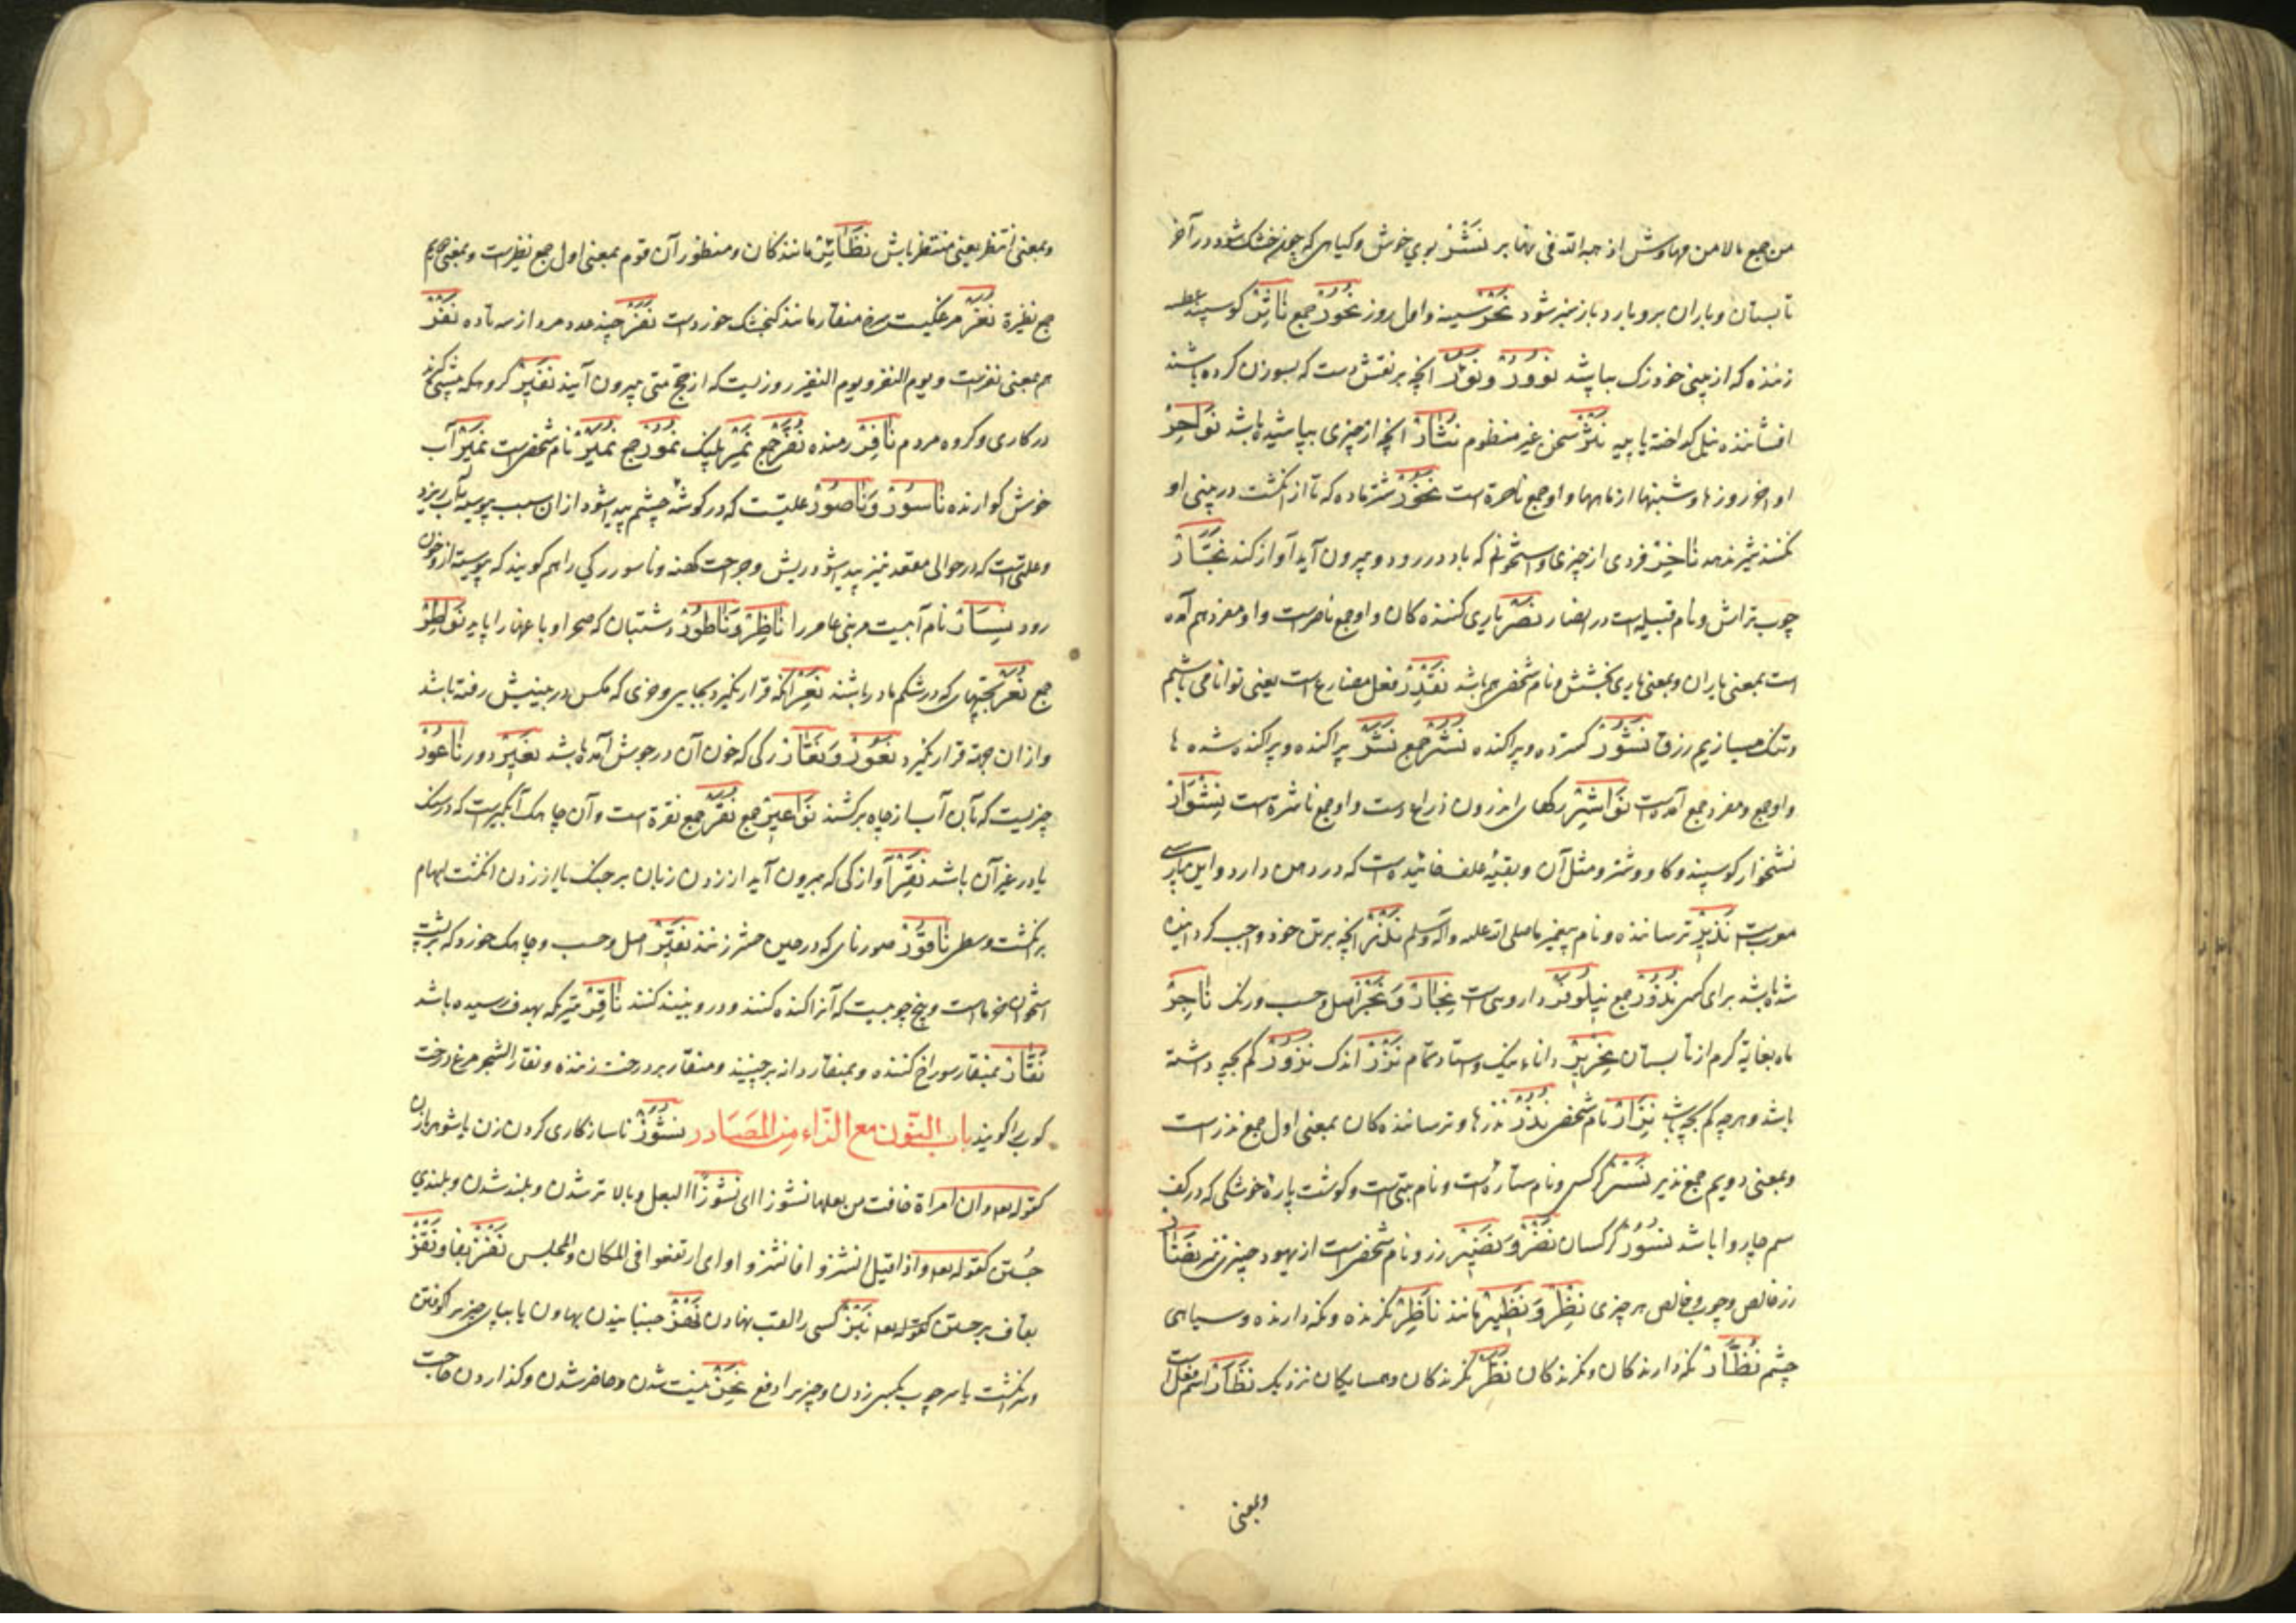 تابستان و باران برو بارد باز سبز شود نَحْرْ سینه و اول روز نُحُورْ جمع نَاثِرْ کوسپند عطسه
زننده که از بینی خود زک بپاشد نُوورْ و نُوَرْ آنچه بر نقش دست که بسوزن کرده باشند
افشاننده نیل کداخته یا پیه نَثْرْ سخن غیر منظوم نُثَارْ آنچه از چیزی بپاشیده باشد نَوَاحِرْ
اواخر روزها و شبنها از ماهها و او جمع ناحرة است نَخُورْ شتر ماده که تا از انکشت در بینی او
نکنند شیر ندهد نَاخِرْ فردی از چیزی و استخوانی که باد در رود و بیرون آید آواز کند نَجَّارْ
چوب تراش و نام قبیله است در انصار نَصْرْ یاری کننده کان و او جمع ناصر است و او مفرد هم آمده
است بمعنی یاران و بمعنی یاری بخشش و نام شخصی هم باشد نَقْدِرْ فعل مضارع است یعنی توانا می باشیم
و تنک میسازیم رزق نَشُورْ کسترده و پراکنده نُشُرْ جمع نَشَرْ پراکنده و پراکنده شده ها
و او جمع و مفرد جمع آمده است نَوَاشِرْ رکهای اندرون ذراع دست و او جمع ناشرة است نِشْوَارْ
نشخوار کوسپند و کاو و شتر و مثل آن و بقیهٔ علف خائیده است که در دهن دارد و این پارسی
معربست نَذِیرْ ترساننده و نام پیغمبر ما صلی الله علیه و آله و سلم نَذْرْ آنچه بر تن خود واجب کردانیده
شده باشد برای کسی نُذُورْ جمع نِیلُوفَرْ داروی است نِجَارْ وَ نَجْرْ اصل و حسب و رنک نَاجِرْ
ماه بغایة کرم از تابستان نِحْرِیرْ دانا و نیک و استاد تمام نَزْرْ اندک نَزُورْ کم بچه داشته
باشد و هرچه کم بچه باشد نِزَارْ نام شخصی نُذُرْ نذرها و ترساننده کان بمعنی اول جمع نذر است
و بمعنی دویم جمع نذیر نَسْرْ کرکس و نام ستاره است و نام بتی است و کوشت پارهٔ خوشکی که در کف
سم چاروا باشد نُسُورْ کرکسان نَضْرْ وَ نَضِیرْ زر و نام شخصی است از یهود نُضَارْ
زر خالص و چوب خالص هر چیزی نِظْرْ وَ نَظِیرْ مانند نَاظِرْ نکرنده و نکه دارنده و سیاهی
چشم نُظَّارْ نکه دارنده کان و نکرنده کان نُظَّرْ نکرنده کان و همسایکان نزدیک نَظَارْ اسم فعل است
وبمعنی
وبمعنی انتظر یعنی منتظر باش نَظَائِرْ مانندکان و منظور آن قوم بمعنی اول جمع نظیر است و بمعنی دویم
جمع نظیرة نُغَرْ مرغکیست سرخ منقار مانند کنجشک خورد است نَفَرْ چند عدد مرد از سه تا ده نَفْرْ
هم بمعنی نفر است و یوم النفر و یوم النفیر روزیست که از حج منی بیرون آیند نَفِیرْ کروهی که پیشی کیرند
در کاری و کروه مردم نَافِرْ رمنده نُفَّرْ جمع نَمِرْ پلنک نُمُورْ جمع نُمَیْرْ نام شخصی است نَمِیرْ آب
خوش کوارنده نَاسُورْ وَ نَاصُورْ علتیست که در کوشهٔ چشم پیدا شود از آن سبب پیوسته آب ریزد
و علتی است که در حوالی مقعد نیز پیدا شود و ریش و جراحت کهنه و ناسور رکی را هم کویند که پیوسته از و خون
رود نِسَارْ نام آبیست مر بنی عامر را نَاظِرْ وَ نَاطُورْ دشتبان که صحرا و باغها را پاید نَوَاطِرْ
جمع نُعَرْ بچهای که در شکم مادر باشند نَعِرْ آنکه قرار نکیرد بجایی و خری که مکس در بینیش رفته باشد
و از آن جهة قرار نکیرد نَعُورْ وَ نَعَّارْ رکی که خون آن در جوش آمده باشد نَعِیرْ دور نَاعُورْ
چرخیست که بآن آب از چاه برکشند نَوَاعِیرْ جمع نُقَرْ جمع نقرة است و آن چاهک آبکیر است که در سنک
یا در غیر آن باشد نَقِرْ آوازکی که بیرون آید از زدن زبان بر حنک یا از زدن انکشت ابهام
بر انکشت وسطی نَاقُورْ صور نای که در حین حشر زنند نَقِیرْ اصل و حسب و چاهک خورد که بر پشت
استخوان خرما است و بیخ چوبیست که آنرا کنده کنند و درو نبیذ کنند نَاقِرْ تیریکه بهدف رسیده باشد
نَقَّارْ بمنقار سوراخ کننده و بمنقار دانه برچیند و منقار بر درخت زننده و نقار الشجر مرغ درخت
کوب را کویند باب النون مع الزاء من المصادر نُشُوزْ ناسازکاری کردن زن با شوهر از آن
کقوله تعالی و ان امراة خافت من بعلها نشوزا ای نشوزا البعل و بالا تر شدن و بلند شدن و بلندی
جستن کقوله تعالی و اذا قیل انشزوا فانشزوا ای ارتفعوا فی المکان و المجلس نَفْزْ بفا و نَقْزْ
بقاف برجستن نَبْزْ کسی را لقب نهادن نَحْزْ جنبانیدن بهاون یا بپای چیزی را کوفتن
و سرانکشت یا سر چوب بکسی زدن و چیزی را دفع نَجْزْ نیست شدن و حاضر شدن و کذاردن حاجت